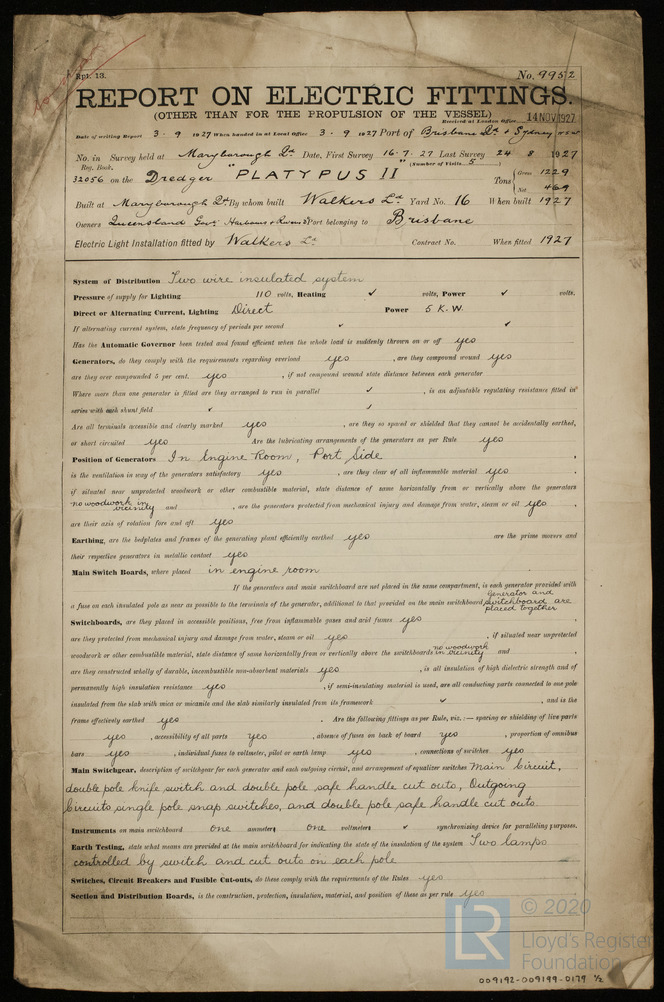 Rpt. 13.
No. 9952
REPORT ON ELECTRIC FITTINGS.
(OTHER THAN FOR THE PROPULSION OF THE VESSEL)
Received at London Office 14 NOV 1927
Date of writing Report 3 - 9 1927 When handed in at Local Office 3 - 9 1927 Port of Brisbane Qd. & Sydney NSW
No. in Survey held at Maryborough Qd. Date, First Survey 16-7-27 Last Survey 24 8 1927
Reg. Book. (Number of Visits 5)
32056 on the Dredger "PLATYPUS II" Tons { Gross 1229
Net 469
Built at Maryborough Qd. By whom built Walkers Ld Yard No. 16 When built 1927
Owners Queensland Govt. Harbours & Rivers Port belonging to Brisbane
Electric Light Installation fitted by Walkers Ld Contract No. When fitted 1927
System of Distribution Two wire insulated system
Pressure of supply for Lighting 110 volts, Heating ✓ volts, Power ✓ volts.
Direct or Alternating Current, Lighting Direct Power 5 K.W.
If alternating current system, state frequency of periods per second ✓ ✓
Has the Automatic Governor been tested and found efficient when the whole load is suddenly thrown on or off yes
Generators, do they comply with the requirements regarding overload yes, are they compound wound yes
are they over compounded 5 per cent. yes, if not compound wound state distance between each generator
Where more than one generator is fitted are they arranged to run in parallel ✓, is an adjustable regulating resistance fitted in
series with each shunt field ✓ ✓
Are all terminals accessible and clearly marked yes, are they so spaced or shielded that they cannot be accidentally earthed,
or short circuited yes Are the lubricating arrangements of the generators as per Rule yes
Position of Generators In Engine Room, Port Side
is the ventilation in way of the generators satisfactory yes, are they clear of all inflammable material yes,
if situated near unprotected woodwork or other combustible material, state distance of same horizontally from or vertically above the generators
no woodwork in vicinity and, are the generators protected from mechanical injury and damage from water, steam or oil yes,
are their axis of rotation fore and aft yes
Earthing, are the bedplates and frames of the generating plant efficiently earthed yes are the prime movers and
their respective generators in metallic contact yes
Main Switch Boards, where placed in engine room
If the generators and main switchboard are not placed in the same compartment, is each generator provided with
a fuse on each insulated pole as near as possible to the terminals of the generator, additional to that provided on the main switchboard generator and switchboard are placed together
Switchboards, are they placed in accessible positions, free from inflammable gases and acid fumes yes
are they protected from mechanical injury and damage from water, steam or oil yes, if situated near unprotected
woodwork or other combustible material, state distance of same horizontally from or vertically above the switchboards no woodwork in vicinity and,
are they constructed wholly of durable, incombustible non-absorbent materials yes, is all insulation of high dielectric strength and of
permanently high insulation resistance yes, if semi-insulating material is used, are all conducting parts connected to one pole
insulated from the slab with mica or micanite and the slab similarly insulated from its framework ✓, and is the
frame effectively earthed yes. Are the following fittings as per Rule, viz.:— spacing or shielding of live parts
yes, accessibility of all parts yes, absence of fuses on back of board yes, proportion of omnibus
bars yes, individual fuses to voltmeter, pilot or earth lamp yes, connections of switches yes
Main Switchgear, description of switchgear for each generator and each outgoing circuit, and arrangement of equalizer switches Main Circuit,
double pole knife switch and double pole safe handle cut outs, Outgoing
Circuits single pole snap switches, and double pole safe handle cut outs
Instruments on main switchboard one ammeters one voltmeters ✓ synchronising device for paralleling purposes.
Earth Testing, state what means are provided at the main switchboard for indicating the state of the insulation of the system Two lamps
controlled by switch and cut outs on each pole
Switches, Circuit Breakers and Fusible Cut-outs, do these comply with the requirements of the Rules yes
Section and Distribution Boards, is the construction, protection, insulation, material, and position of these as per rule yes
LR © 2020
Lloyd's Register
Foundation
009192-009199-0179 ½